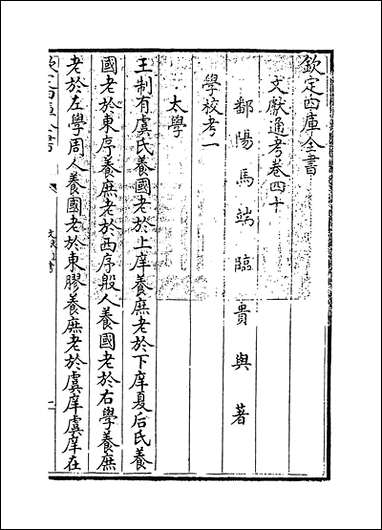 欽定四庫全書
文獻通考卷四十
鄱陽馬端臨貴與著
學校考一
太學
王制有虞氏養國老於上庠養庶老於下庠夏后氏養
國老於東序養庶老於西序殷人養國老於右學養庶
老於左學周人養國老於東膠養庶老於虞庠虞庠在